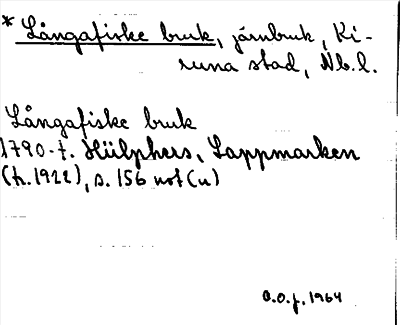 * Långafiske bruk, järnbruk, Ki-
runa stad, Nb.l.
Långafiske bruk
1790-t. Hülphers, Lappmarken
(tr.1922), s. 156 not (u)
O.O.f. 1964